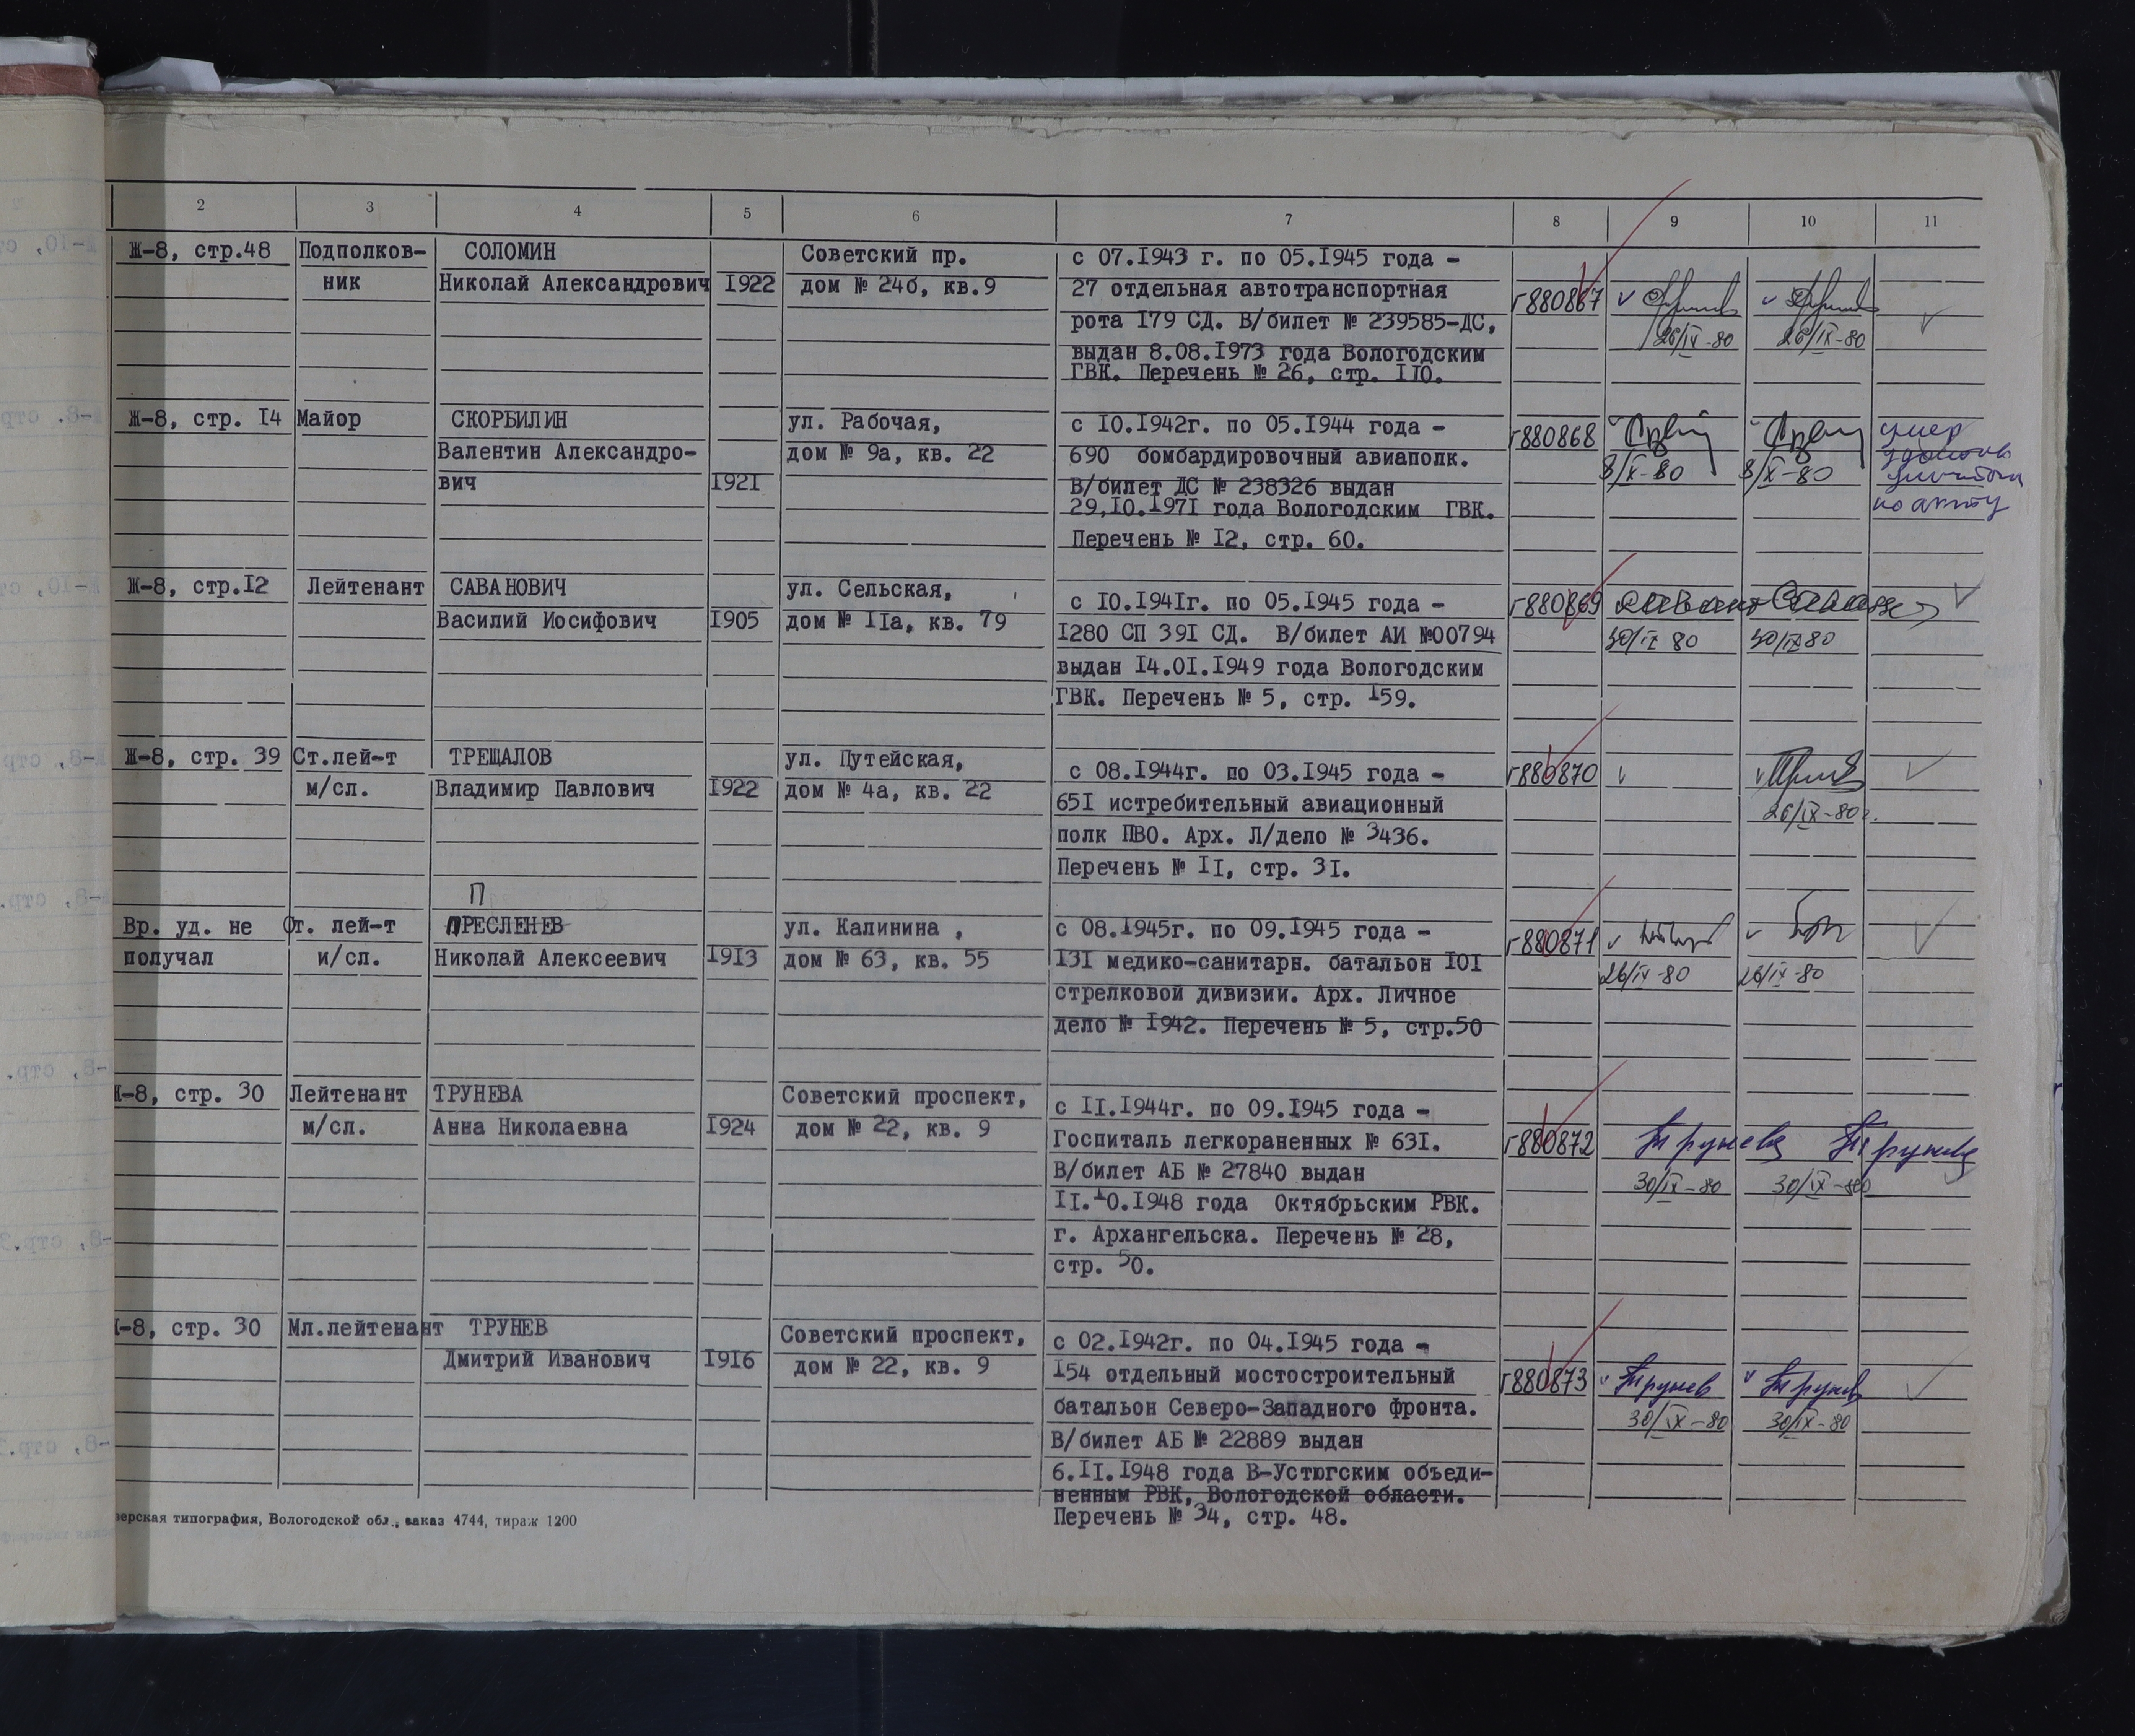 2 3 4 5 6 7 8 9 10 11
Ж-8, стр.48 Подполков- СОЛОМИН Советский пр. с 07.1943 г. по 05.1945 года -
ник Николай Александрович 1922 дом № 24б, кв.9 27 отдельная автотранспортная г880867
рота 179 СД. В/билет № 239585-ДС,
26/IX-80 26/IX-80
выдан 8.08.1973 года Вологодским
ГВК. Перечень № 26, стр. 110.
Ж-8, стр. 14 Майор СКОРБИЛИН ул. Рабочая, с 10.1942г. по 05.1944 года - г880868 умер
Валентин Александро- дом № 9а, кв. 22 690 бомбардировочный авиаполк. 8/X-80 8/X-80
вич 1921 В/билет ДС № 238326 выдан
29.10.1971 года Вологодским ГВК. по акту
Перечень № 12, стр. 60.
Ж-8, стр.12 Лейтенант САВАНОВИЧ ул. Сельская, с 10.1941г. по 05.1945 года - г880869
Василий Иосифович 1905 дом № 11а, кв. 79 1280 СП 391 СД. В/билет АИ №00794 30/IX 80 30/IX 80
выдан 14.01.1949 года Вологодским
ГВК. Перечень № 5, стр. 159.
Ж-8, стр. 39 Ст.лей-т ТРЕЩАЛОВ ул. Путейская, с 08.1944г. по 03.1945 года - г880870
м/сл. Владимир Павлович 1922 дом № 4а, кв. 22 651 истребительный авиационный 26/IX-80г.
полк ПВО. Арх. Л/дело № 3436.
Перечень № 11, стр. 31.
П
Вр. уд. не Ст. лей-т ПРЕСЛЕНЕВ ул. Калинина , с 08.1945г. по 09.1945 года - г880871
получал и/сл. Николай Алексеевич 1913 дом № 63, кв. 55 131 медико-санитарн. батальон 101 26/IX-80 26/IX-80
стрелковой дивизии. Арх. Личное
дело № 1942. Перечень № 5, стр.50
Ж-8, стр. 30 Лейтенант ТРУНЕВА Советский проспект, с 11.1944г. по 09.1945 года -
м/сл. Анна Николаевна 1924 дом № 22, кв. 9 Госпиталь легкораненных № 631. г880872 Трунева Трунева
В/билет АБ № 27840 выдан 30/IX-80 30/IX-80
11.10.1948 года Октябрьским РВК.
г. Архангельска. Перечень № 28,
стр. 50.
-8, стр. 30 Мл.лейтенант ТРУНЕВ Советский проспект, с 02.1942г. по 04.1945 года -
Дмитрий Иванович 1916 дом № 22, кв. 9 154 отдельный мостостроительный г880873 Трунев Трунев
батальон Северо-Западного фронта. 30/IX-80 30/IX-80
В/билет АБ № 22889 выдан
6.11.1948 года В-Устюгским объеди-
ненным РВК, Вологодской области.
Перечень № 34, стр. 48.
типография, Вологодской обл., заказ 4744, тираж 1200